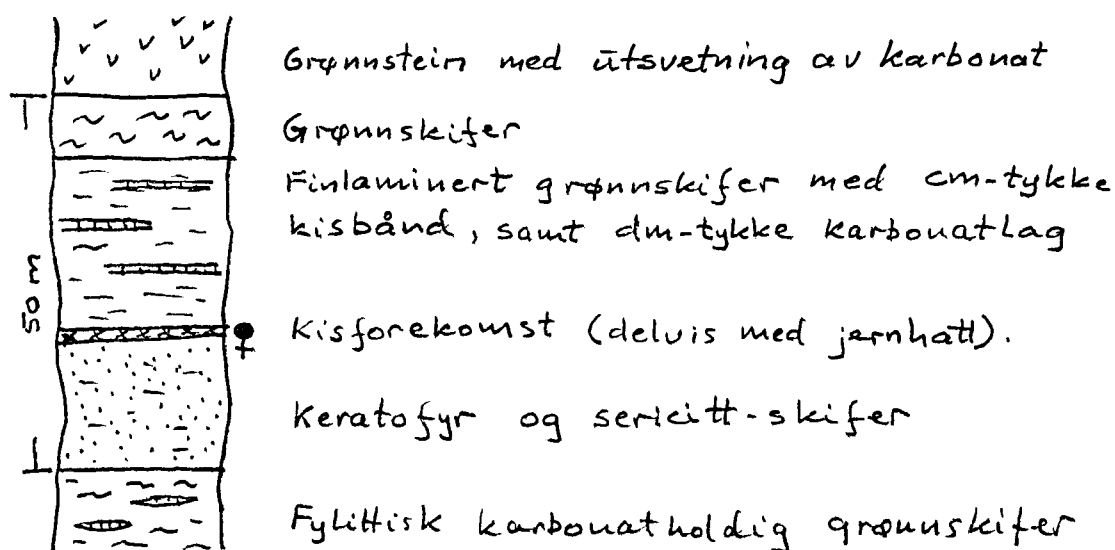 Grønnstein med utsvetning av karbonat
Grønnskifer
Finlaminert grønnskifer med cm-tykke
kisbånd, samt dm-tykke karbonatlag
50 m
Kisforekomst (delvis med jernhatt).
Keratofyr og sericitt-skifer
Fylittisk karbonatholdig grønnskifer